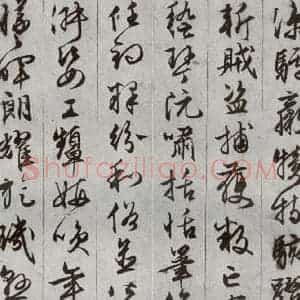 涼驢騾犢特駭躍
斬賊盜捕獲叛亡
嵇琴阮嘯恬筆
任釣釋紛利俗並皆
淑姿工顰妍笑年
曦暉朗耀旋璣懸
Shufaziliao.com